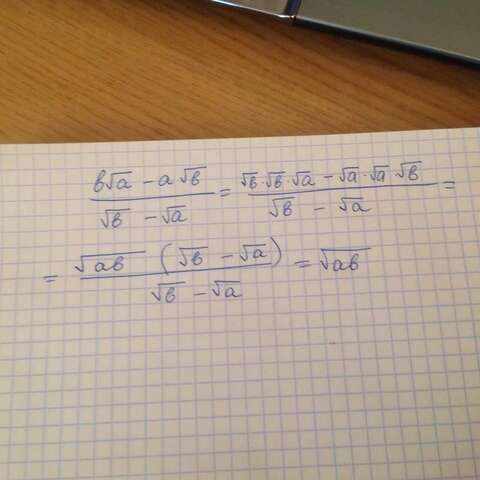 (b√a − a√b)/(√b − √a) = (√b·√b·√a − √a·√a·√b)/(√b − √a) =
= (√ab (√b − √a))/(√b − √a) = √ab